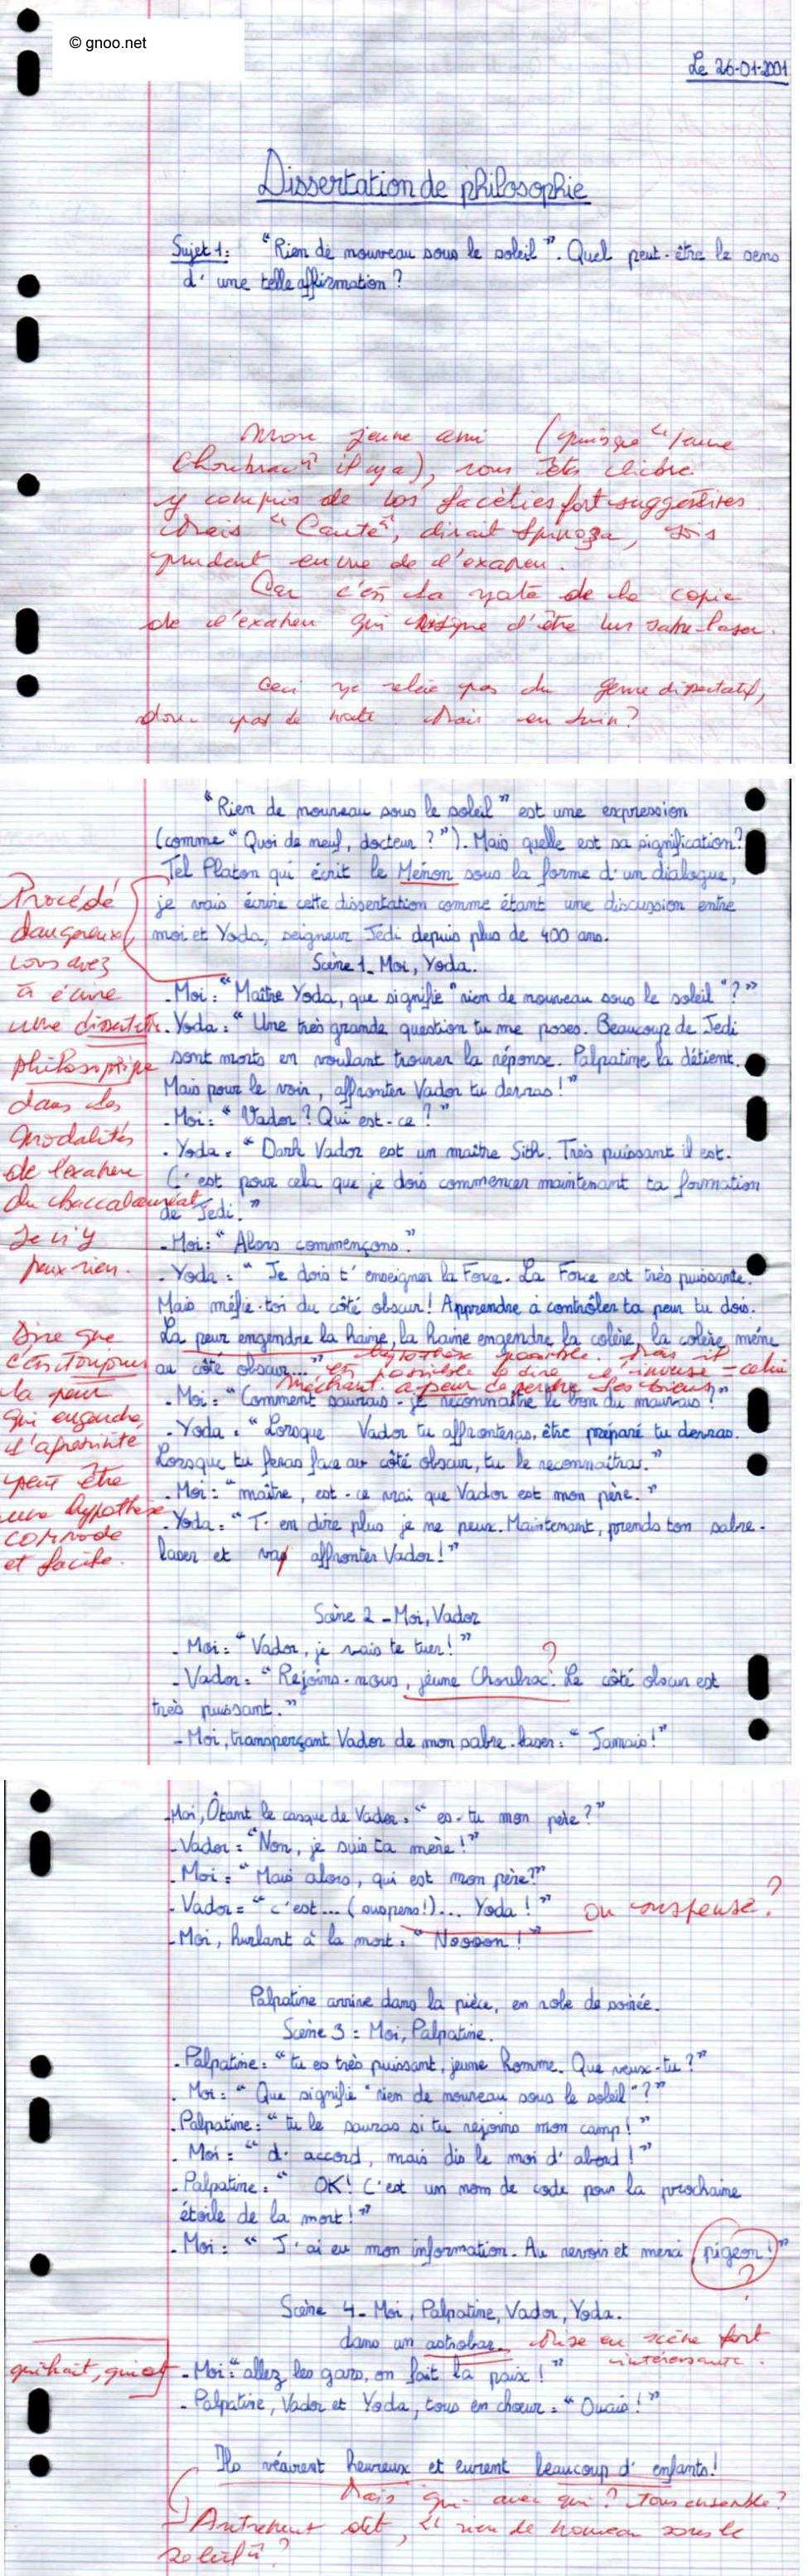 © gnoo.net
Le 26-01-2001
Dissertation de philosophie
Sujet 1: "Rien de nouveau sous le soleil". Quel peut-être le sens
d'une telle affirmation ?
Mon jeune ami (puisque "jeune
Choubrac" il y a), vous êtes
y compris de vos facéties fort suggestives.
Mais "Caute", disait Spinoza, sois
prudent en vue de l'examen.
Car c'est la note de la copie
de l'examen qui risque d'être un sabre-laser.
Ceci ne relève pas du genre dissertatif,
donc pas de note. Mais en Juin ?
"Rien de nouveau sous le soleil" est une expression
(comme "Quoi de neuf, docteur ?"). Mais quelle est sa signification ?
Tel Platon qui écrit le Ménon sous la forme d'un dialogue,
je vais écrire cette dissertation comme étant une discussion entre
moi et Yoda, seigneur Jedi depuis plus de 400 ans.
Procédé
dangereux,
vous avez
à écrire
une dissertat.
philosophique
dans les
modalités
de l'examen
du baccalauréat
Je n'y
peux rien.
Scène 1_ Moi, Yoda.
- Moi : "Maître Yoda, que signifie "rien de nouveau sous le soleil" ?"
- Yoda : "Une très grande question tu me poses. Beaucoup de Jedi
sont morts en voulant trouver la réponse. Palpatine la détient.
Mais pour le voir, affronter Vador tu devras !"
- Moi : "Vador ? Qui est-ce ?"
- Yoda : "Dark Vador est un maître Sith. Très puissant il est.
C'est pour cela que je dois commencer maintenant ta formation
de Jedi."
- Moi : "Alors commençons."
- Yoda : "Je dois t'enseigner la Force. La Force est très puissante.
Mais méfie-toi du côté obscur ! Apprendre à contrôler ta peur tu dois.
La peur engendre la haine, la haine engendre la colère, la colère mène
au côté obscur..."
hypothèse possible. Mais il
est possible de dire l'inverse = celui
méchant a peur de perdre ses biens
Dire que
c'est toujours
la peur
qui engendre
l'agressivité
peut être
une hypothèse
commode
et facile.
- Moi : "Comment saurais-je reconnaître le bon du mauvais ?"
- Yoda : "Lorsque Vador tu affronteras, être préparé tu devras.
Lorsque tu feras face au côté obscur, tu le reconnaîtras."
- Moi : "maître, est-ce vrai que Vador est mon père."
- Yoda : "T'en dire plus je ne peux. Maintenant, prends ton sabre-
laser et vas affronter Vador !"
Scène 2 - Moi, Vador
- Moi : "Vador, je vais te tuer !"
?
- Vador : "Rejoins-nous, jeune Choubrac. Le côté obscur est
très puissant."
- Moi, transperçant Vador de mon sabre-laser : "Jamais !"
- Moi, Ôtant le casque de Vador : "es-tu mon père ?"
- Vador : "Non, je suis ta mère !"
- Moi : "Mais alors, qui est mon père ?"
- Vador : "c'est... (suspens !)... Yoda !"
ou suspense ?
- Moi, hurlant à la mort : "Nooooon !"
Palpatine arrive dans la pièce, en robe de soirée.
Scène 3 : Moi, Palpatine.
- Palpatine : "tu es très puissant, jeune homme. Que veux-tu ?"
- Moi : "Que signifie "rien de nouveau sous le soleil" ?"
- Palpatine : "tu le sauras si tu rejoins mon camp !"
- Moi : "d'accord, mais dis le moi d'abord !"
- Palpatine : "OK ! C'est un nom de code pour la prochaine
étoile de la mort !"
- Moi : "J'ai eu mon information. Au revoir et merci, pigeon !"
?
Scène 4_ Moi, Palpatine, Vador, Yoda.
dans un astrobar.
Mise en scène fort
intéressante.
- Moi : "allez les gars, on fait la paix !"
- Palpatine, Vador et Yoda, tous en chœur : "Ouais !"
Ils vécurent heureux et eurent beaucoup d'enfants !
Mais qui avec qui ? Tous ensemble ?
Autrement dit, "rien de nouveau sous le
soleil" ?